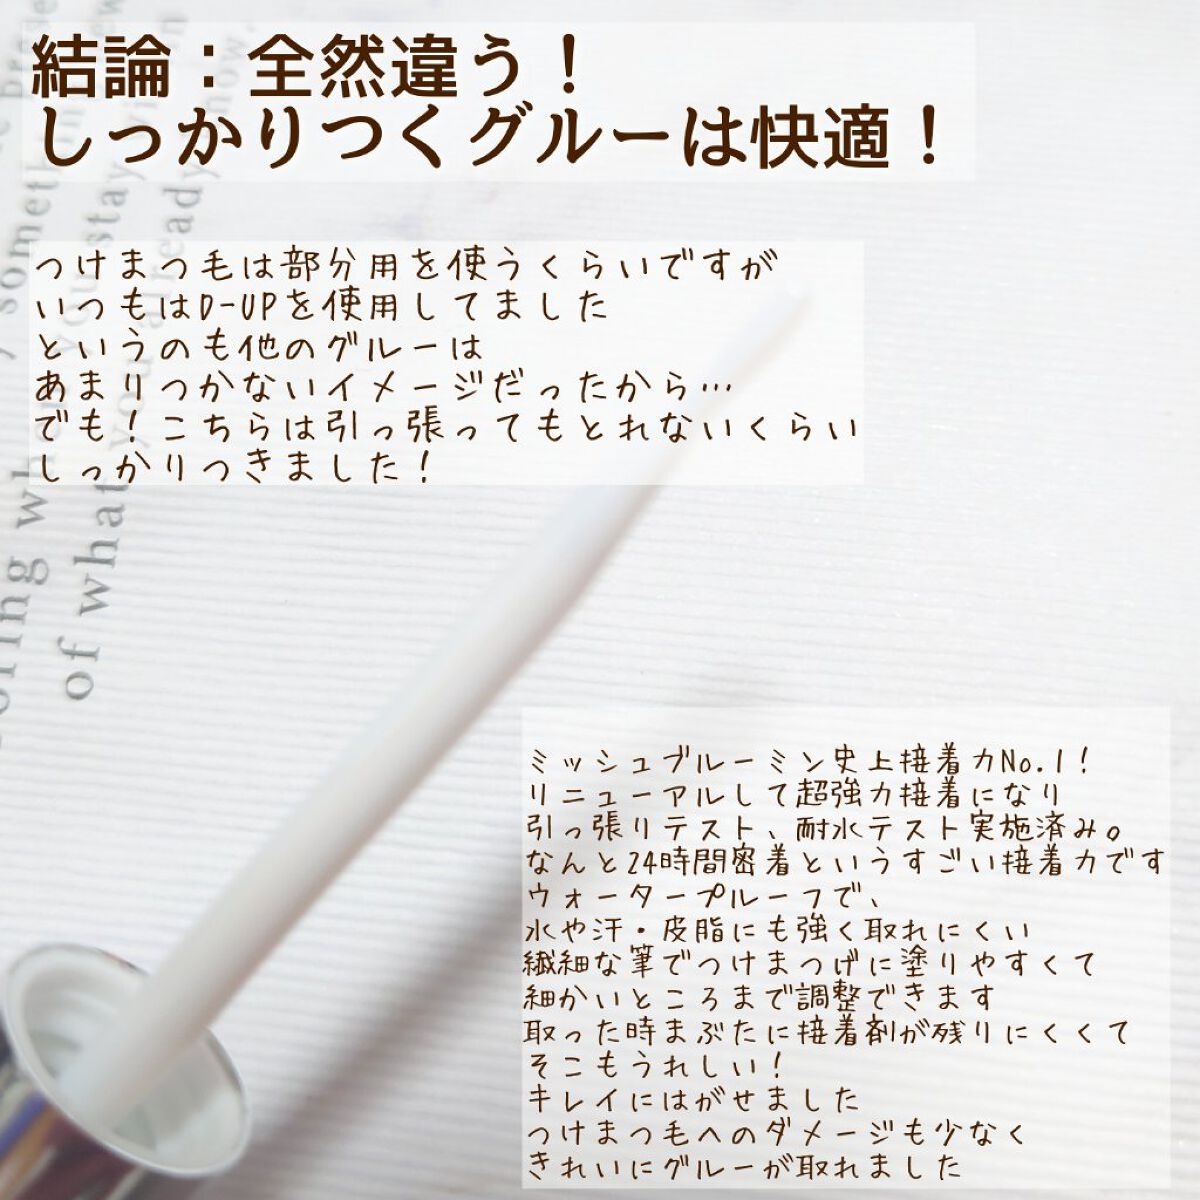 結論：全然違う！
しっかりつくグルーは快適！
つけまつ毛は部分用を使うくらいですが
いつもはD-UPを使用してました
というのも他のグルーは
あまりつかないイメージだったから…
でも！こちらは引っ張ってもとれないくらい
しっかりつきました！
ミッシュブルーミン史上接着力No.1！
リニューアルして超強力接着になり
引っ張りテスト、耐水テスト実施済み。
なんと24時間密着というすごい接着力です
ウォータープルーフで、
水や汗・皮脂にも強く取れにくい
繊細な筆でつけまつげに塗りやすくて
細かいところまで調整できます
取った時まぶたに接着剤が残りにくくて
そこもうれしい！
キレイにはがせました
つけまつ毛へのダメージも少なく
きれいにグルーが取れました
something
you stay
already know.
oring wh
of what